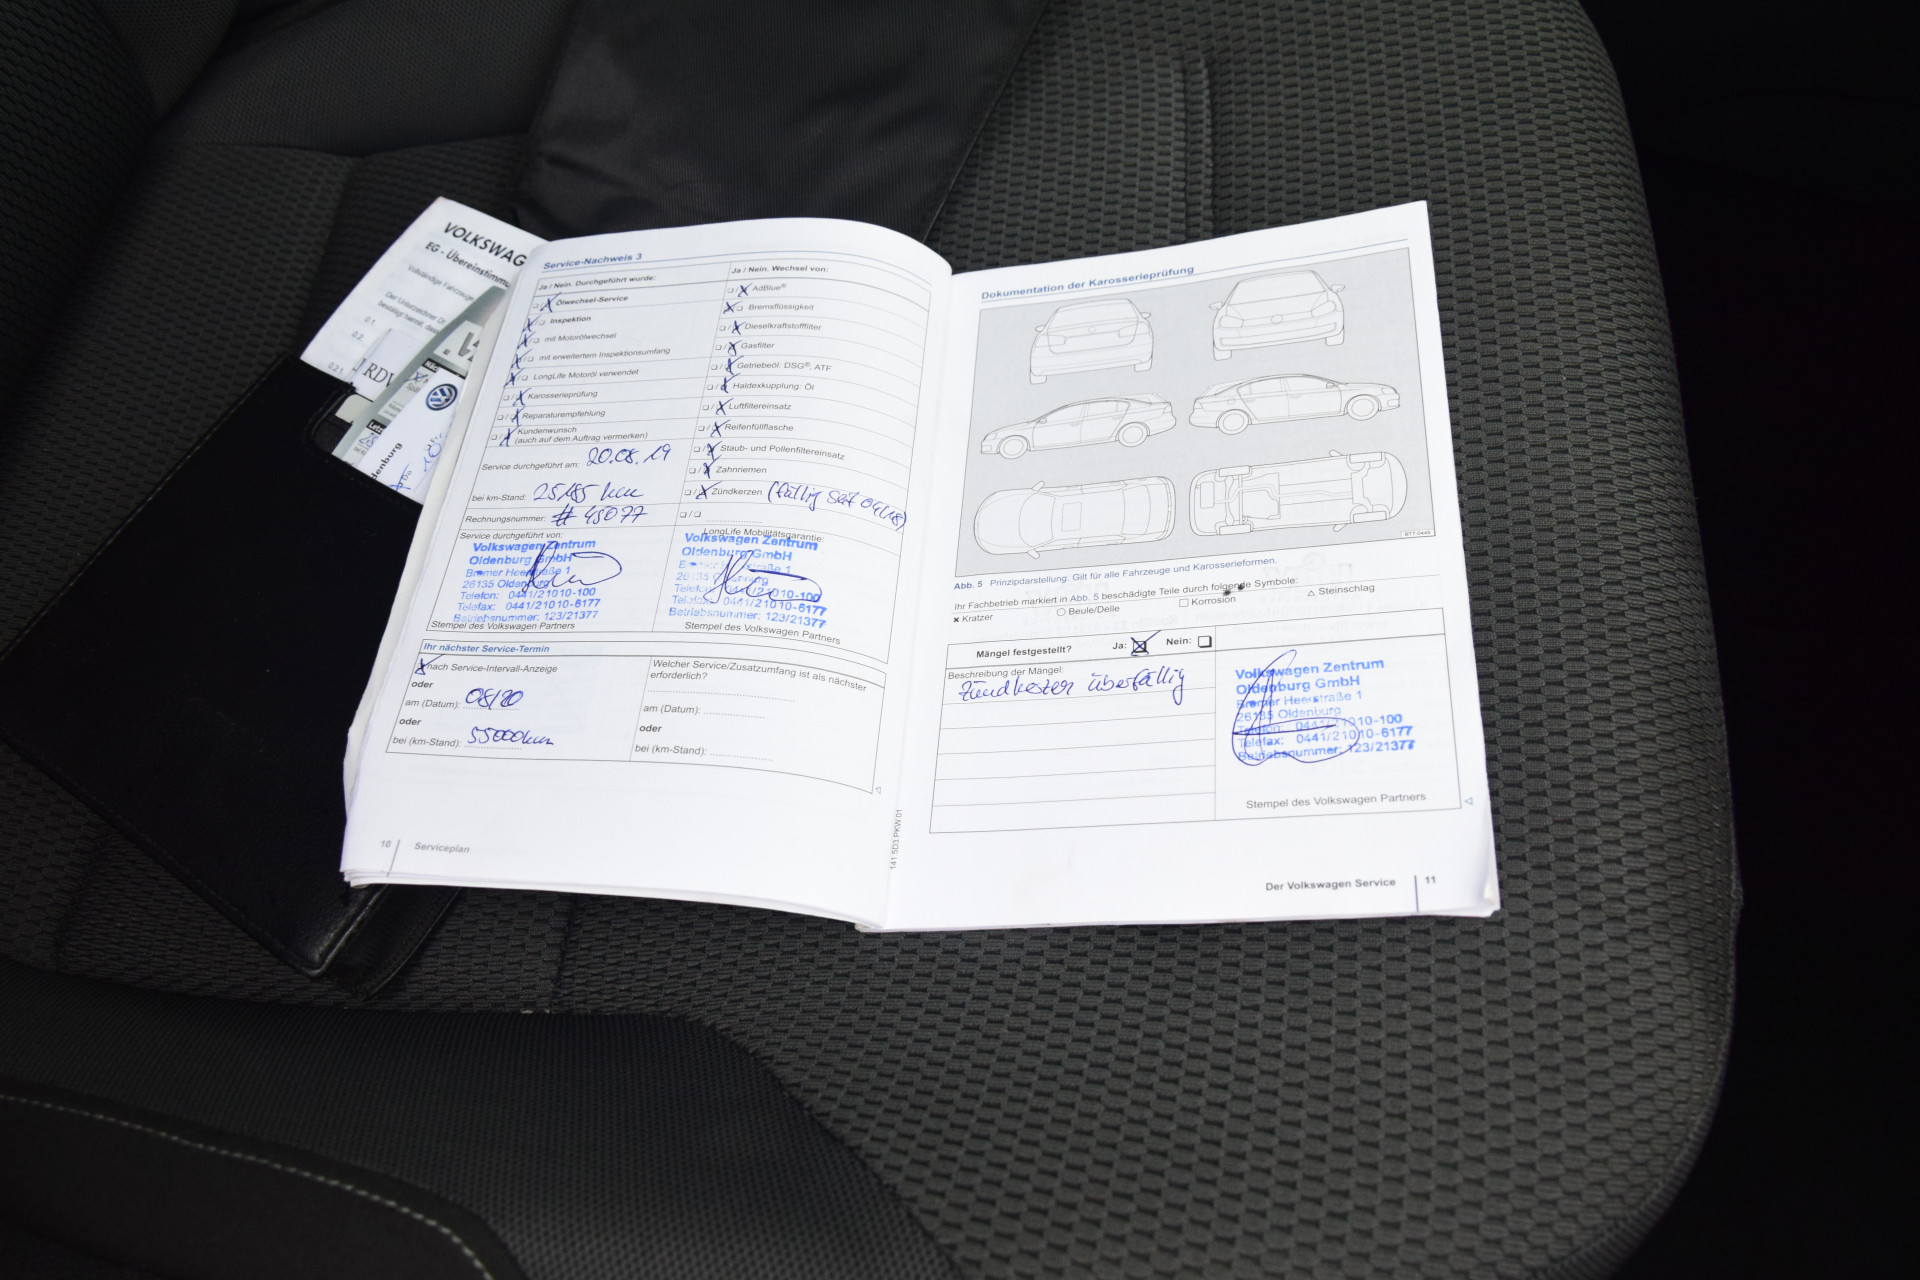 VOLKSWAG
EG - Übereinstimmu
Vollständige Fahrzeuge
Der Unterzeichner Dr.
bestätigt hiermit, dass
0.1
0.2
0.2.1
RDW
denburg
Service-Nachweis 3
Ja / Nein. Durchgeführt wurde:
Ölwechsel-Service
Inspektion
mit Motorölwechsel
mit erweitertem Inspektionsumfang
LongLife Motoröl verwendet
Karosserieprüfung
Reparaturempfehlung
Kundenwunsch
(auch auf dem Auftrag vermerken)
Service durchgeführt am: 20.08.19
bei km-Stand: 25185 km
Rechnungsnummer: # 45077
Service durchgeführt von:
Volkswagen Zentrum
Oldenburg GmbH
Bremer Heerstraße 1
26135 Oldenburg
Telefon: 0441/21010-100
Telefax: 0441/21010-6177
Betriebsnummer: 123/21377
Stempel des Volkswagen Partners
Ja / Nein. Wechsel von:
AdBlue®
Bremsflüssigkeit
Dieselkraftstofffilter
Gasfilter
Getriebeöl: DSG®, ATF
Haldexkupplung: Öl
Luftfiltereinsatz
Reifenfüllflasche
Staub- und Pollenfiltereinsatz
Zahnriemen
Zündkerzen (fällig seit 04/18)
LongLife Mobilitätsgarantie:
Volkswagen Zentrum
Oldenburg GmbH
Bremer Heerstraße 1
26135 Oldenburg
Telefon: 0441/21010-100
Telefax: 0441/21010-6177
Betriebsnummer: 123/21377
Stempel des Volkswagen Partners
Ihr nächster Service-Termin
nach Service-Intervall-Anzeige
oder
am (Datum): 08/20
oder
bei (km-Stand): 55000km
Welcher Service/Zusatzumfang ist als nächster
erforderlich?
am (Datum):
oder
bei (km-Stand):
10 Serviceplan
141.5D3.PKW.01
Dokumentation der Karosserieprüfung
BT7-0445
Abb. 5 Prinzipdarstellung. Gilt für alle Fahrzeuge und Karosserieformen.
Ihr Fachbetrieb markiert in Abb. 5 beschädigte Teile durch folgende Symbole:
Kratzer Beule/Delle Korrosion Steinschlag
Mängel festgestellt? Ja: Nein:
Beschreibung der Mängel:
Zündkerzen überfällig
Volkswagen Zentrum
Oldenburg GmbH
Bremer Heerstraße 1
26135 Oldenburg
Telefon: 0441/21010-100
Telefax: 0441/21010-6177
Betriebsnummer: 123/21377
Stempel des Volkswagen Partners
Der Volkswagen Service 11